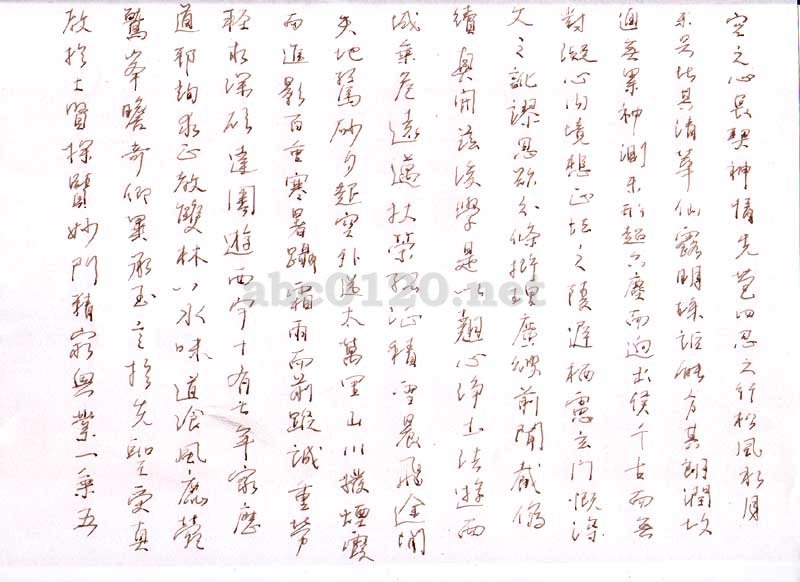 空之心長契神情先苞四忍之行松風水月
未足比其清華仙露明珠詎能方其朗潤故
通無累神測未形超六塵而迥出隻千古而無
對凝心內境悲正法之陵遲栖慮玄門慨深
文之訛謬思欲分條析理廣彼前聞截偽
續真開茲後學是以翹心淨土法遊西
域乘危遠邁杖策孤征積雪晨飛途閒
失地驚砂夕起空外迷天萬里山川撥煙霞
而進影百重寒暑躡霜雨而前蹤誠重勞
輕求深願達周遊西宇十有七年窮歷
道邦詢求正教雙林八水味道飡風鹿菀
鷲峯瞻奇仰異承至言於先聖受真
教於上賢探賾妙門精窮奧業一乘五
abc0120.net